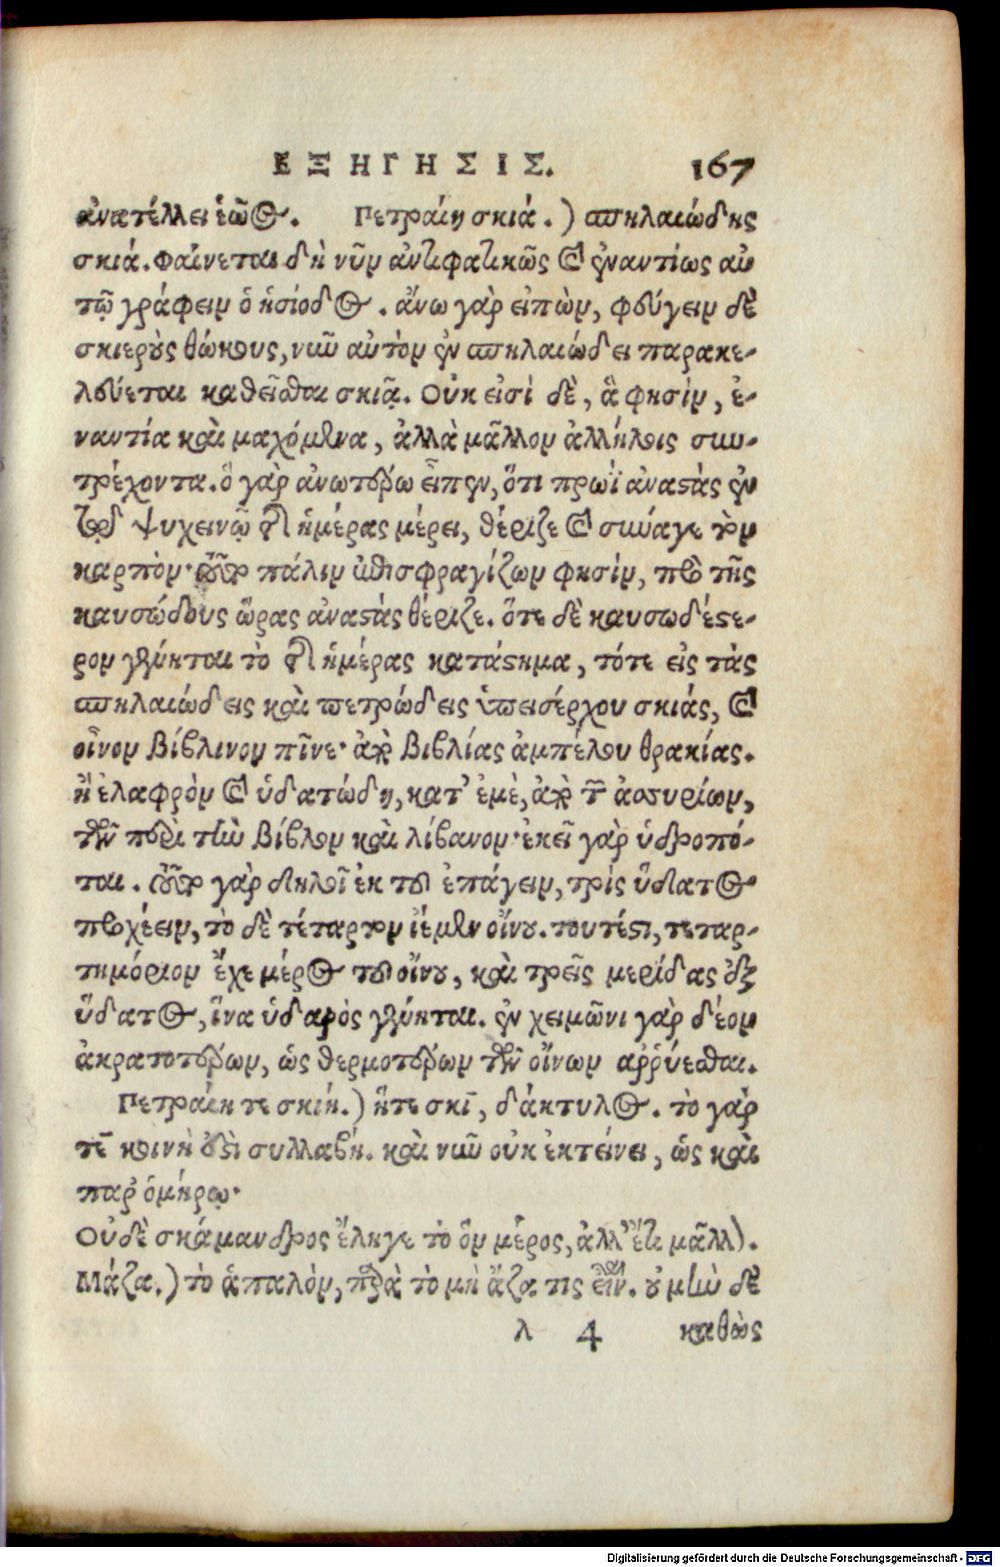 ΕΞΗΓΗΣΙΣ. 167
ἀνατέλλει ἑῶος. Πετραίη σκιά.) σπηλαιώδης
σκιά. Φαίνεται δὴ νῦν ἀντιφατικῶς καὶ ἐναντίως αὑ
τῷ γράφειν ὁ ἡσίοδος. ἄνω γὰρ εἰπὼν, φεύγειν δὲ
σκιεροὺς θώκους, νῦν αὐτὸν ἐν σπηλαιώδει παρακε-
λεύεται καθεῖσθαι σκιᾷ. Οὐκ εἰσὶ δὲ, ἅ φησὶν, ἐ-
ναντία καὶ μαχόμενα, ἀλλὰ μᾶλλον ἀλλήλοις συν-
τρέχοντα. ὃ γὰρ ἀνωτέρω εἶπεν, ὅτι πρωῒ ἀναστὰς ἐν
τῷ ψυχεινῷ τῆς ἡμέρας μέρει, θέριζε καὶ σύναγε τὸν
καρπὸν· τοῦτο πάλιν ἐπισφραγίζων φησὶν, πρὸ τῆς
καυσώδους ὥρας ἀναστὰς θέριζε. ὅτε δὲ καυσωδέστε-
ρον γένηται τὸ τῆς ἡμέρας κατάστημα, τότε εἰς τὰς
σπηλαιώδεις καὶ πετρώδεις ὑπεισέρχου σκιάς, καὶ
οἶνον βίβλινον πῖνε· ἀπὸ βιβλίας ἀμπέλου θρακίας.
ἢ ἐλαφρὸν καὶ ὑδατώδη, κατ' ἐμὲ, ἀπὸ τῶν ἀσσυρίων,
τῶν περὶ τὴν βίβλον καὶ λίβανον· ἐκεῖ γὰρ ὑδροπό-
ται. τοῦτο γὰρ δηλοῖ ἐκ τοῦ ἐπάγειν, τρὶς ὕδατος
προχέειν, τὸ δὲ τέταρτον ἱέμεν οἴνου. τουτέστι, τεταρ-
τημόριον ἔχε μέρος τοῦ οἴνου, καὶ τρεῖς μερίδας ἐξ
ὕδατος, ἵνα ὑδαρὸς γένηται. ἐν χειμῶνι γὰρ δέον
ἀκρατοτέρων, ὡς θερμοτέρων τῶν οἴνων ἀρρύεσθαι.
Πετραίη τε σκιή.) ἥτε σκῑ, δάκτυλος. τὸ γὰρ
τε̄ κοινὴ ἐστὶ συλλαβή. καὶ νῦν οὐκ ἐκτείνει, ὡς καὶ
παρ' ὁμήρῳ·
Οὐδὲ σκάμανδρος ἔληγε τὸ ὃν μένος, ἀλλ' ἔτι μᾶλλον.
Μάζα.) τὸ ἁπαλὸν, παρὰ τὸ μὴ ἄζα τις εἶναι. οὐ μὴν δὲ
λ 4 καθὼς